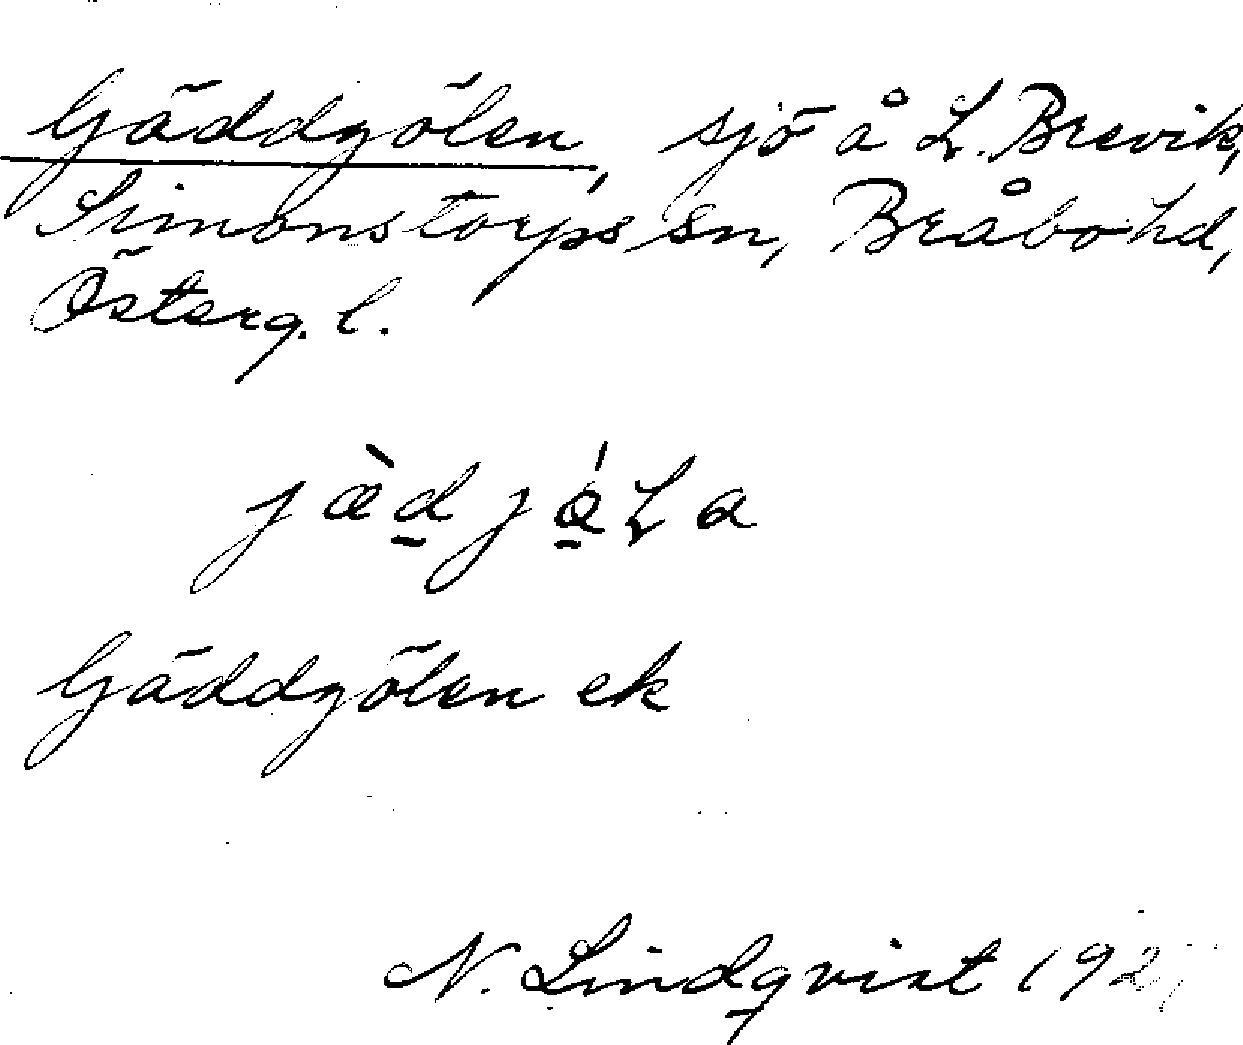 Gäddgölen, sjö å L. Brevik,
Simonstorps sn, Bråbo hd,
Österg. l.
jæ̀d̲jǿ̲La
Gäddgölen ek
N. Lindqvist